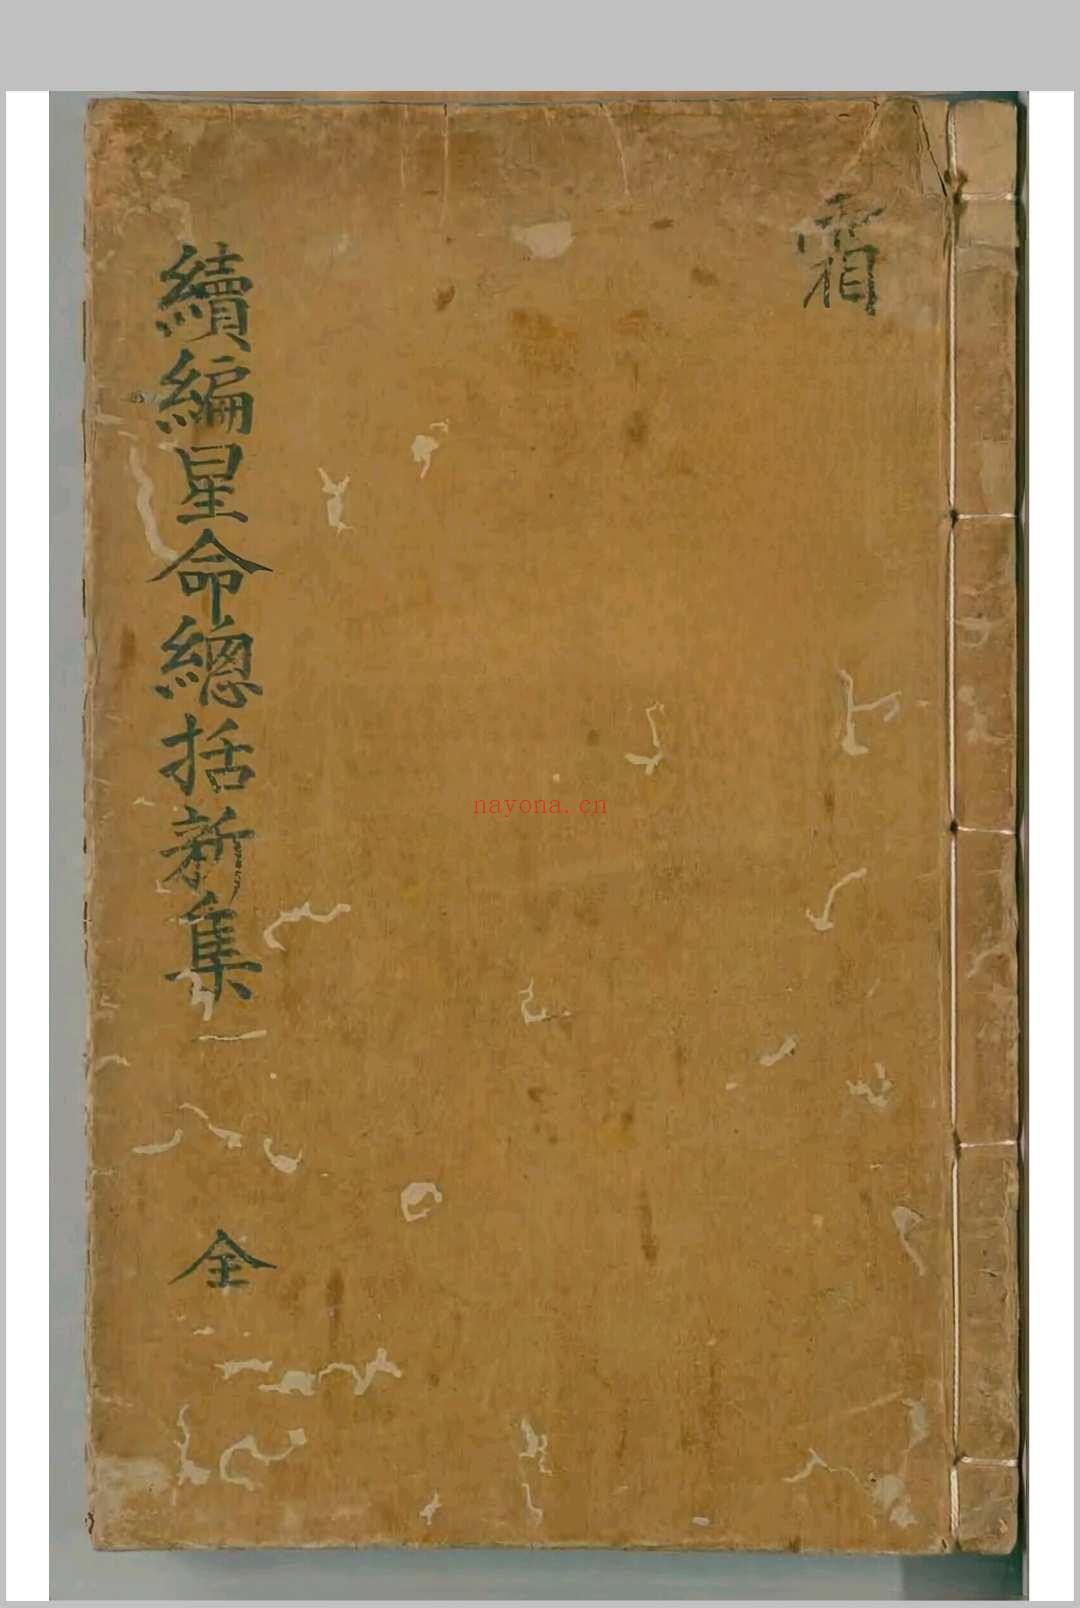 霜
續編星命總括新集
全
nayona.cn